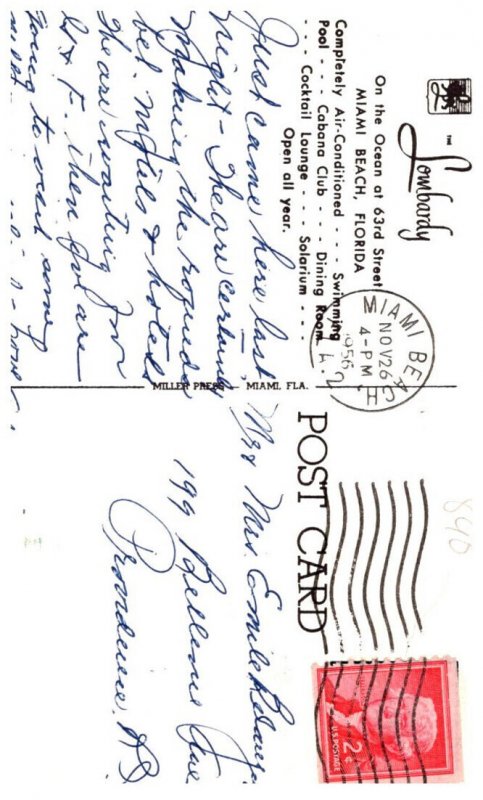 THE
Lombardy
On the Ocean at 63rd Street
MIAMI BEACH, FLORIDA
Completely Air-Conditioned - - - Swimming
Pool - - - Cabana Club - - - Dining Room
- - - Cocktail Lounge - - - Solarium - - -
Open all year.
Just came here last
night - There certainly
making the rounds
bet. motels & hotels
There waiting for
& F. then
going to visit some
MILLER PRESS - MIAMI, FLA.
MIAMI BEACH,
NOV 26
4-PM
1956
POST CARD
2¢
U.S. POSTAGE
840
Mr & Mrs Emile
199 Bellevue Ave
Providence, RI